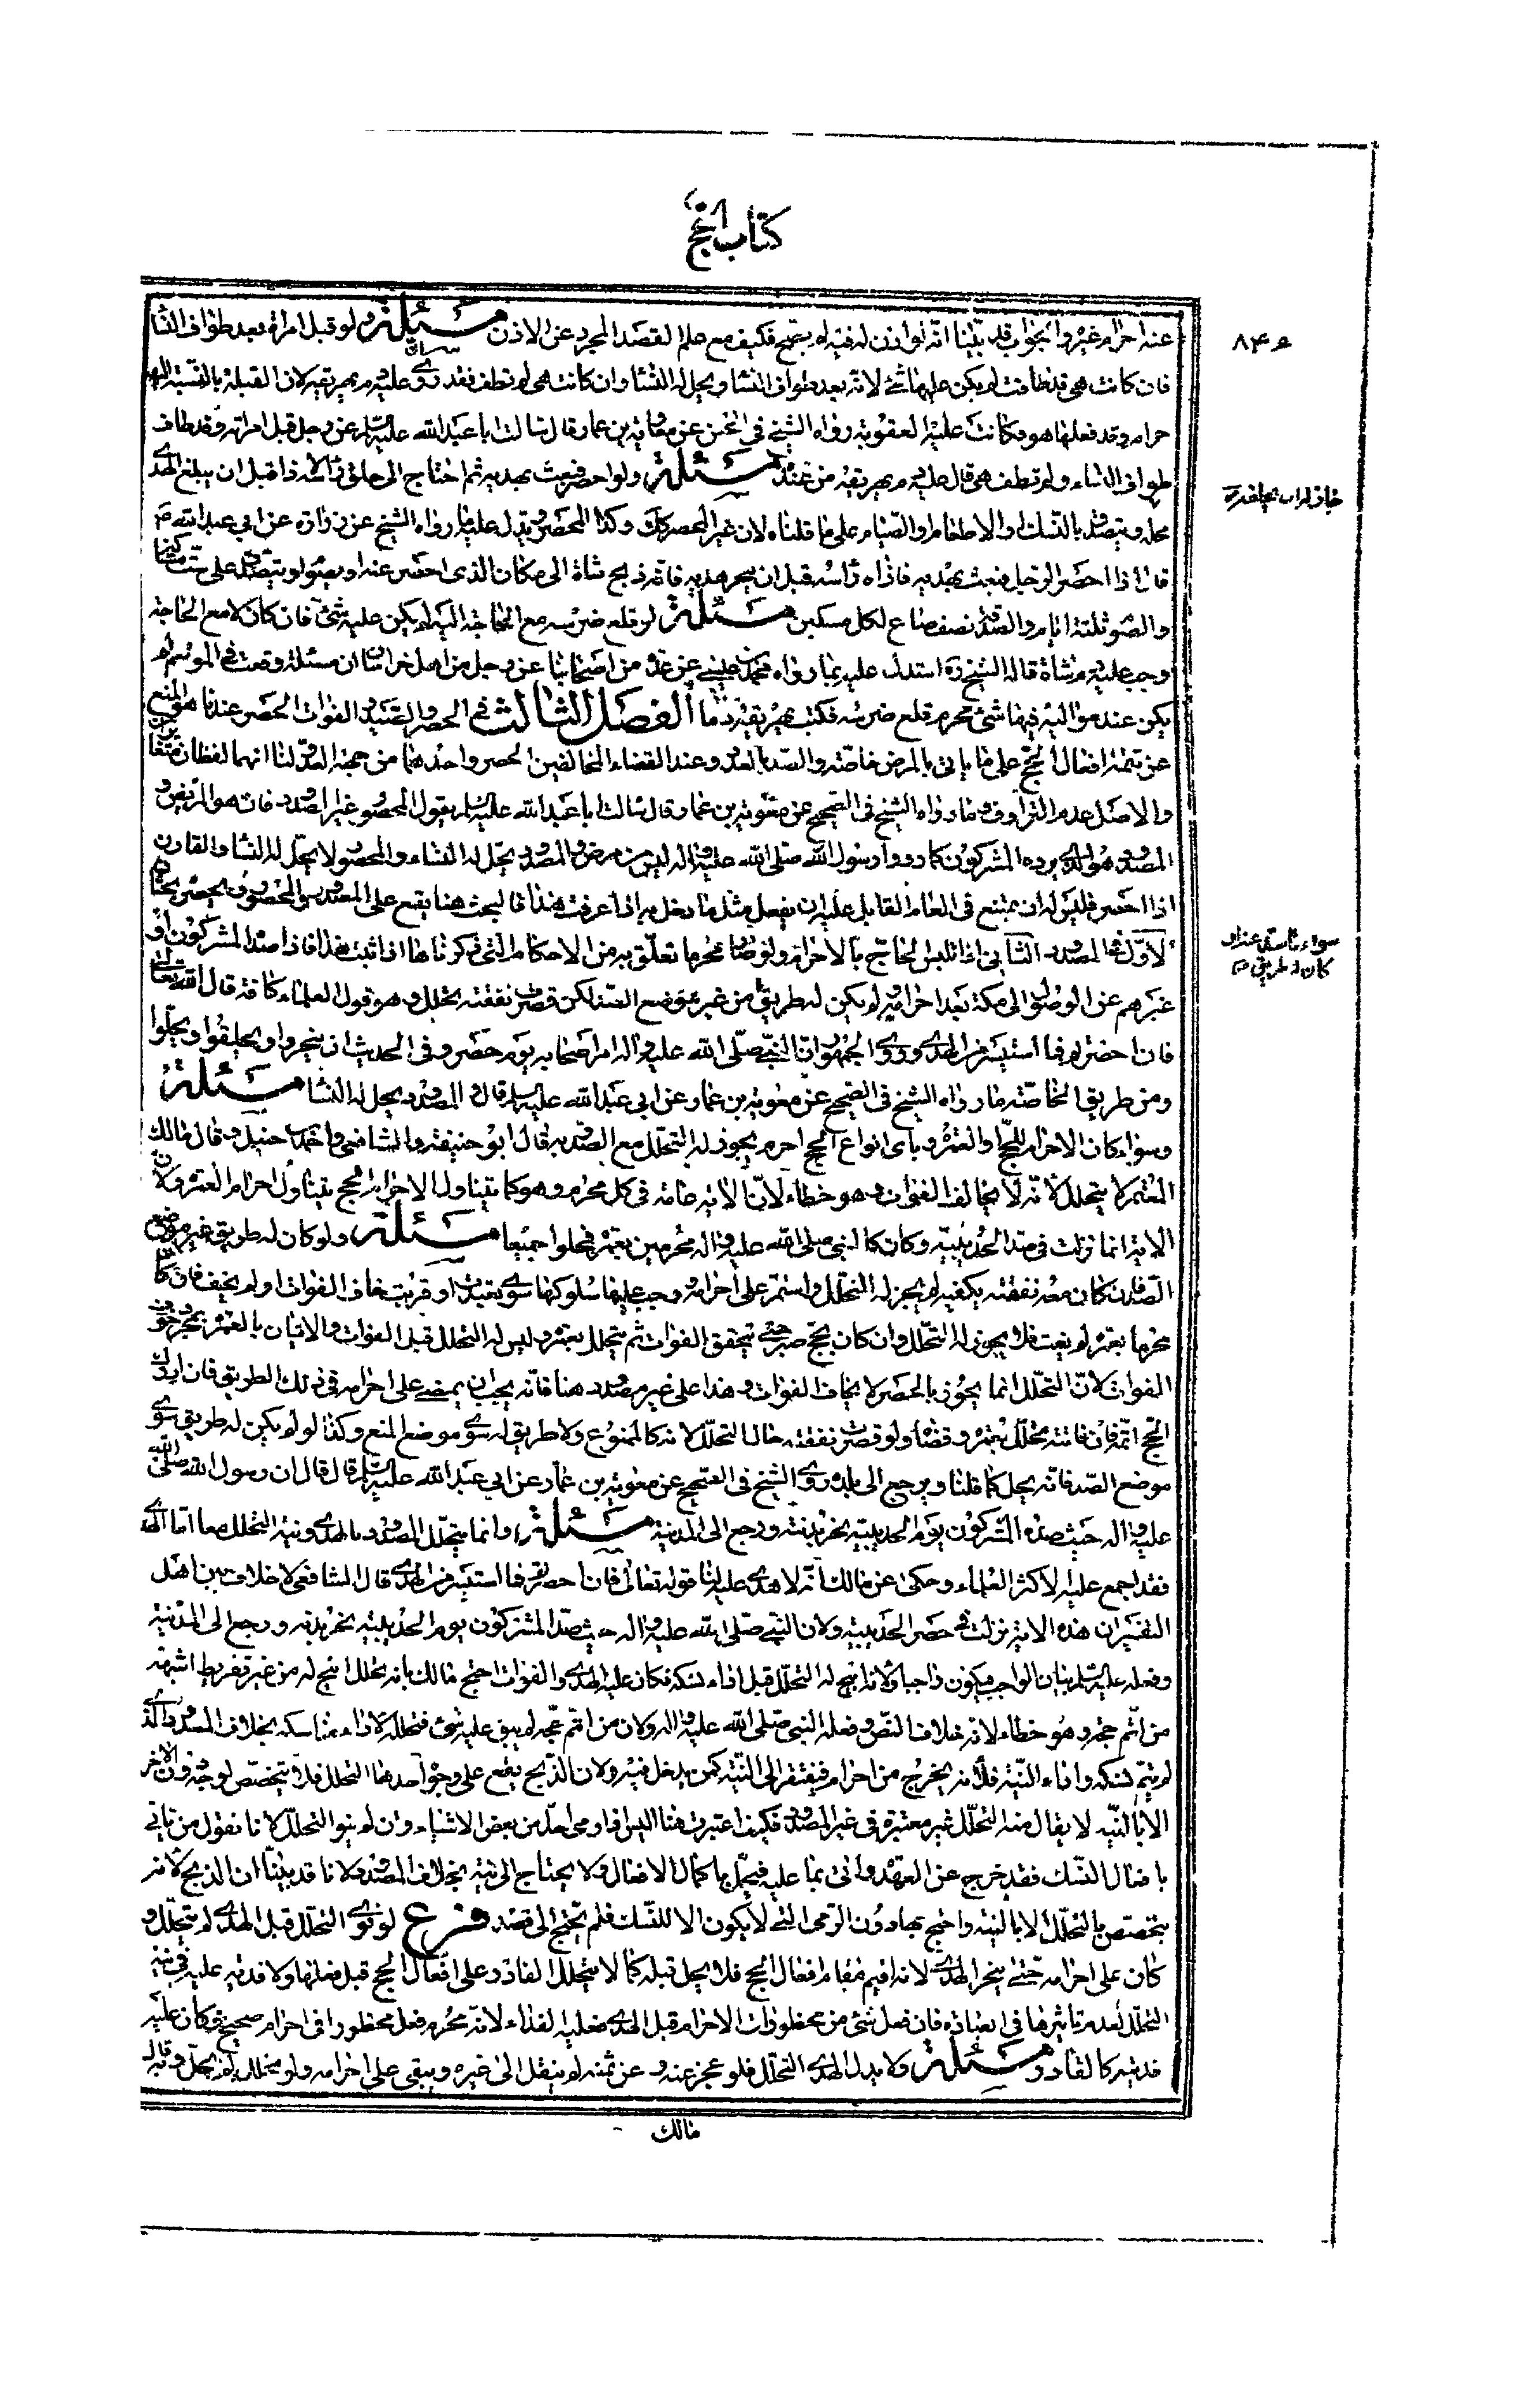 كتاب الحج
٨٤٦
عنه احرام غيره والجواب قد بيّنا انّه لو اذن له فيه لم يصح فكيف مع عدم القصد المجرد عن الاذن مسئلة ولو قبل امرأة بعد طواف النسا
فان كانت هى قد طافت لم يكن عليهما شئ لانّه بعد طواف النسا ويحل له النسا وان كانت هى لم تطف فقد روى عليه دم يهريقه لان القبلة بالنسبة اليها
حرام وقد فعلها هو فكانت عليه العقوبة رواه الشيخ فى الحسن عن معاوية بن عمار قال سالت ابا عبد الله عليه السلم عن رجل قبل امراته وقد طاف
طواف النساء ولم تطف هى قال عليه دم يهريقه من عنده مسئلة ولو احصر فبعث بهديه ثم احتاج الى حلق راسه لاذا قبل ان يبلغ الهدى
محله ويتصدق بالنسك او الاطعام او الصيام على ما قلناه لان غير المحصر كذلك وكذا المحصر ويدل عليه ما رواه الشيخ عن زرارة عن ابى عبد الله ع
قال اذا احصر الرجل فبعث بهديه فاذاه راسه قبل ان ينحر هديه فانه يذبح شاة الى مكان الذى احصر عنه او يصوم او يتصدق على ستة مساكين
والصوم ثلثة ايام والصدقة نصف صاع لكل مسكين مسئلة لو قلع ضرسه مع الحاجة اليه لم يكن عليه شئ فان كان لا مع الحاجة
وجب عليه دم شاة قاله الشيخ ره استدل عليه بما رواه محمد بن عيسى عن عدة من اصحابنا عن رجل من اهل خراسان ان مسئلة وقعت فى الموسم لم
يكن عند مواليه فيها شئ محرم قلع ضرسه فكتب يهريق دما الفصل الثالث فى الحصر والصد والفوات الحصر عندنا هو المنع
عن تتمة افعال الحج على ما ياتى بالمرض خاصة والصد بالعدو وعند الفقهاء المخالفين الحصر واحد هما من جهة العدو لنا انهما لفظان متغايران
والاصل عدم الترادف وما رواه الشيخ فى الصحيح عن معوية بن عمار قال سالت ابا عبد الله عليه السلم يقول المحصور غير المصدود فان هو المريض و
المصدود هو الذى يرده المشركون كما ردوا رسول الله صلى الله عليه واله ليس من مرض والمصدود يحل له النساء والمحصور لا يحل له النسا والقارن
اذا احصر فليس له ان يتمتع فى العام القابل عليه ان يفعل مثل ما دخل به اذا عرفت هذا فالبحث هنا يقع على المصدود والمحصور بحثان
الاول فى المصدود الثانى اذا تلبس الحاج بالاحرام ولو صار محرما تعلّق به من الاحكام التى ذكرناها اذا ثبت هذا فاذا صده المشركون او
غيرهم عن الوصول الى مكة بعد احرامه ولم يكن له طريق من غير موضع الصد لكن قصرت نفقته تحلل وهو قول العلماء كافة قال الله تعالى
فان احصرتم فما استيسر من الهدى وروى الجمهور ان النبى صلى الله عليه واله امر اصحابه يوم حصر وفى الحديث ان ينحروا ويحلقوا ويحلوا
ومن طريق الخاصة ما رواه الشيخ فى الصحيح عن معوية بن عمار عن ابى عبد الله عليه السلم قال المصدود يحل له النسا مسئلة
وسواء كان الاحرام للحج او العمرة وباى انواع الحج احرم يجوز له التحلل مع الصد وبه قال ابو حنيفة والشافعى واحمد بن حنبل وقال مالك
المعتمر لا يتحلل لانه لا يخاف الفوات وهو خطاء لان الاية عامة فى كل محرم وهو كما يتناول الاحرام بالحج يتناول احرام العمرة ولان
الاية انما نزلت فى صد الحديبية وكان النبى صلى الله عليه واله محرمين بعمرة فحلوا جميعا مسئلة ولو كان له طريق غير موضع
الصد فان كان معه نفقته يكفيه لم يجز له التحلل واستمر على احرامه ووجب عليه سلوكها سوى بعدت او قربت خاف الفوات او لم يخف فان كان
محرما بعمرة لم يفت فلا يجوز له التحلل وان كان بحج صبر حتى يتحقق الفوات ثم يتحلل بعمرة وليس له التحلل قبل الفوات والاتيان بالعمرة بمجرد خوف
الفوات لان التحلل انما يجوز بالحصر لا بخاف الفوات وهذا على غير مصدود هنا فانه يجب ان يمضى على احرامه فى ذلك الطريق فان ادرك
الحج اتمه فان فاته تحلل بعمرة وقضا ولو قصرت نفقته جاز التحلل لانه كالممنوع ولا طريق له سوى موضع المنع وكذا لو لم يكن له طريق سوى
موضع الصد فانه يحل كما قلنا ويرجع الى بلده روى الشيخ فى الصحيح عن معوية بن عمار عن ابى عبد الله عليه السلم قال قال ان رسول الله صلى الله
عليه واله حيث صده المشركون يوم الحديبية نحر بدنته ورجع الى المدينة مسئلة وانما يتحلل المصدود بالهدى ونية التحلل معا اما الهدى
فقد اجمع عليه اكثر العلماء وحكى عن مالك انه لا هدى عليه لنا قوله تعالى فان احصرتم فما استيسر من الهدى قال الشافعى لا خلاف بين اهل
التفسير ان هذه الاية نزلت فى حصر الحديبية ولان النبى صلى الله عليه واله حيث صده المشركون يوم الحديبية نحر بدنته ورجع الى المدينة
وفعله عليه السلم بيان الواجب فيكون واجبا ولانه ابيح له التحلل قبل اداء نسكه فكان عليه الهدى والفوات احتج مالك بانه تحلل ابيح له من غير تفريط اشبه
من اتم حجه وهو خطاء لانه خلاف النص وفعله النبى صلى الله عليه واله ولان من اتم حجه لم يبق عليه شئ فتحلله لاداء مناسكه بخلاف المصدود الذى
لم يتم نسكه واداء النية فلانه يخرج من احرام فيفتقر الى النية كمن يدخل فيه ولان الذبح يقع على وجوه احدها التحلل فلا يتخصص لوجه دون الاخر
الا بالنية لا يقال نية التحلل غير معتبرة فى غير المصدود فكيف اعتبرت هنا اليس اذا رمى احل من بعض الاشياء وان لم ينو التحلل لانا نقول من ياتى
بافعال النسك فقد خرج عن العهدة واتى بما عليه فيحل باكمال الافعال ولا يحتاج الى نية بخلاف المصدود ولانا قد بينّا ان الذبح لانه
يتخصص بالتحلل الا بالنية واحتج بها دون الرمى التى لا يكون الا للنسك فلم يحتج الى قصد فرع لو نوى التحلل قبل الهدى لم يتحلل و
كان على احرامه حتى ينحر الهدى لانه اقيم مقام افعال الحج فلا يحل قبله كما لا يتحلل القادر على افعال الحج قبل فعلها ولا فدية عليه فى نية
التحلل لعدم تاثيرها فى العبادة فان فعل شئ من محظورات الاحرام قبل الهدى فعليه الفداء لانه محرم فعل محظورا فى احرام صحيح فكان عليه
فديته كالقادر مسئلة ولا بدل لهدى التحلل فلو عجز عنه وعن ثمنه لم ينتقل الى غيره ويبقى على احرامه ولو تحلل لم يحل وقال
مالك
سواء
كان له طريق